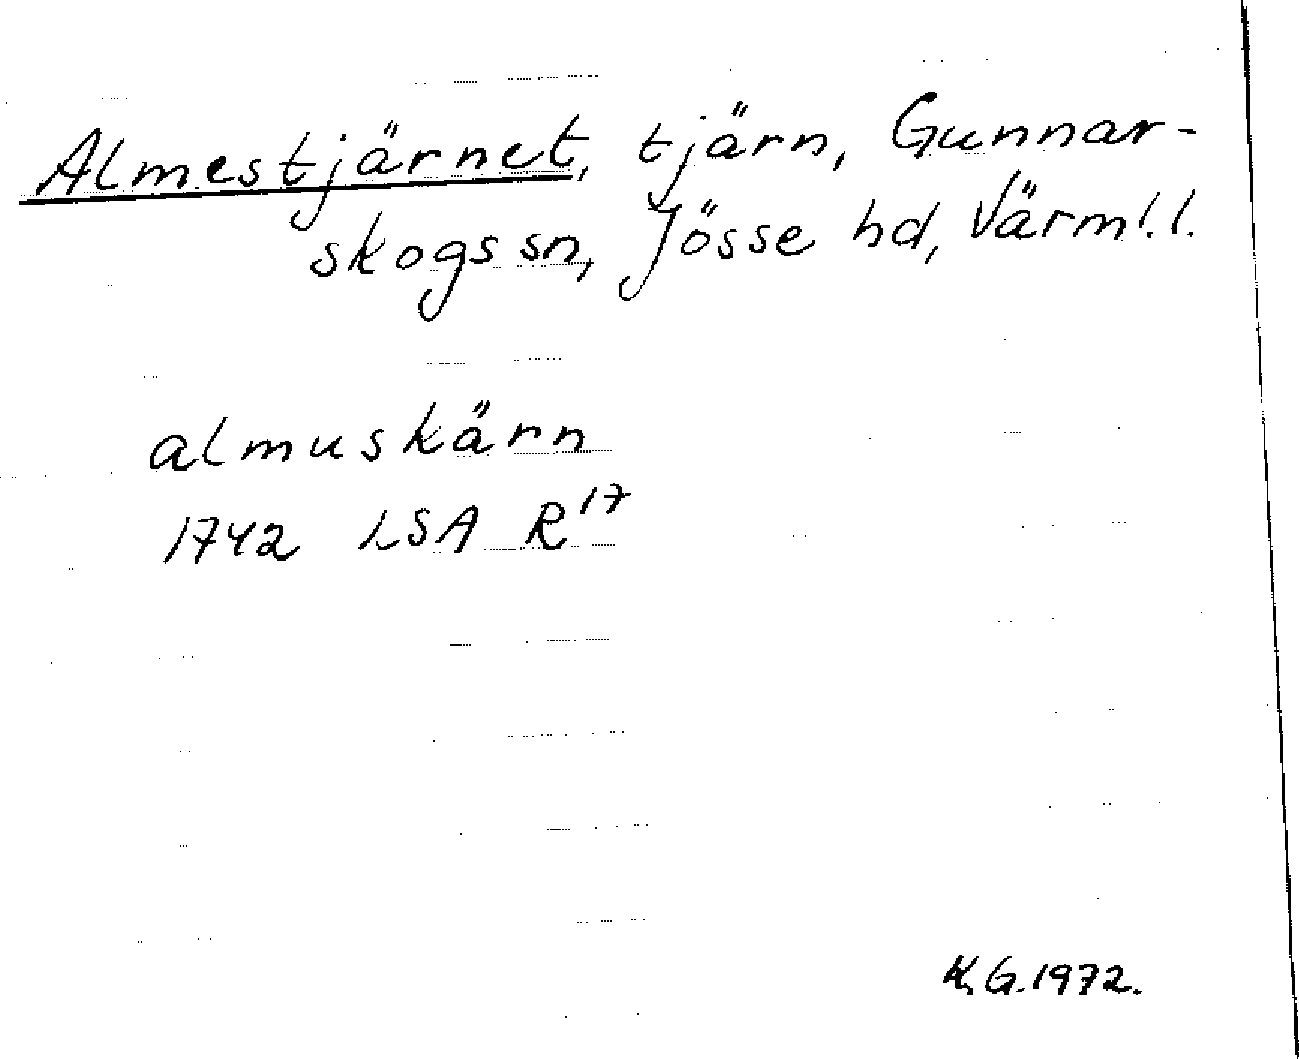 Almestjärnet, tjärn, Gunnar-
skogs sn, Jösse hd, Värml.l.
almuskärn
1742 LSA R17
K.G.1972.